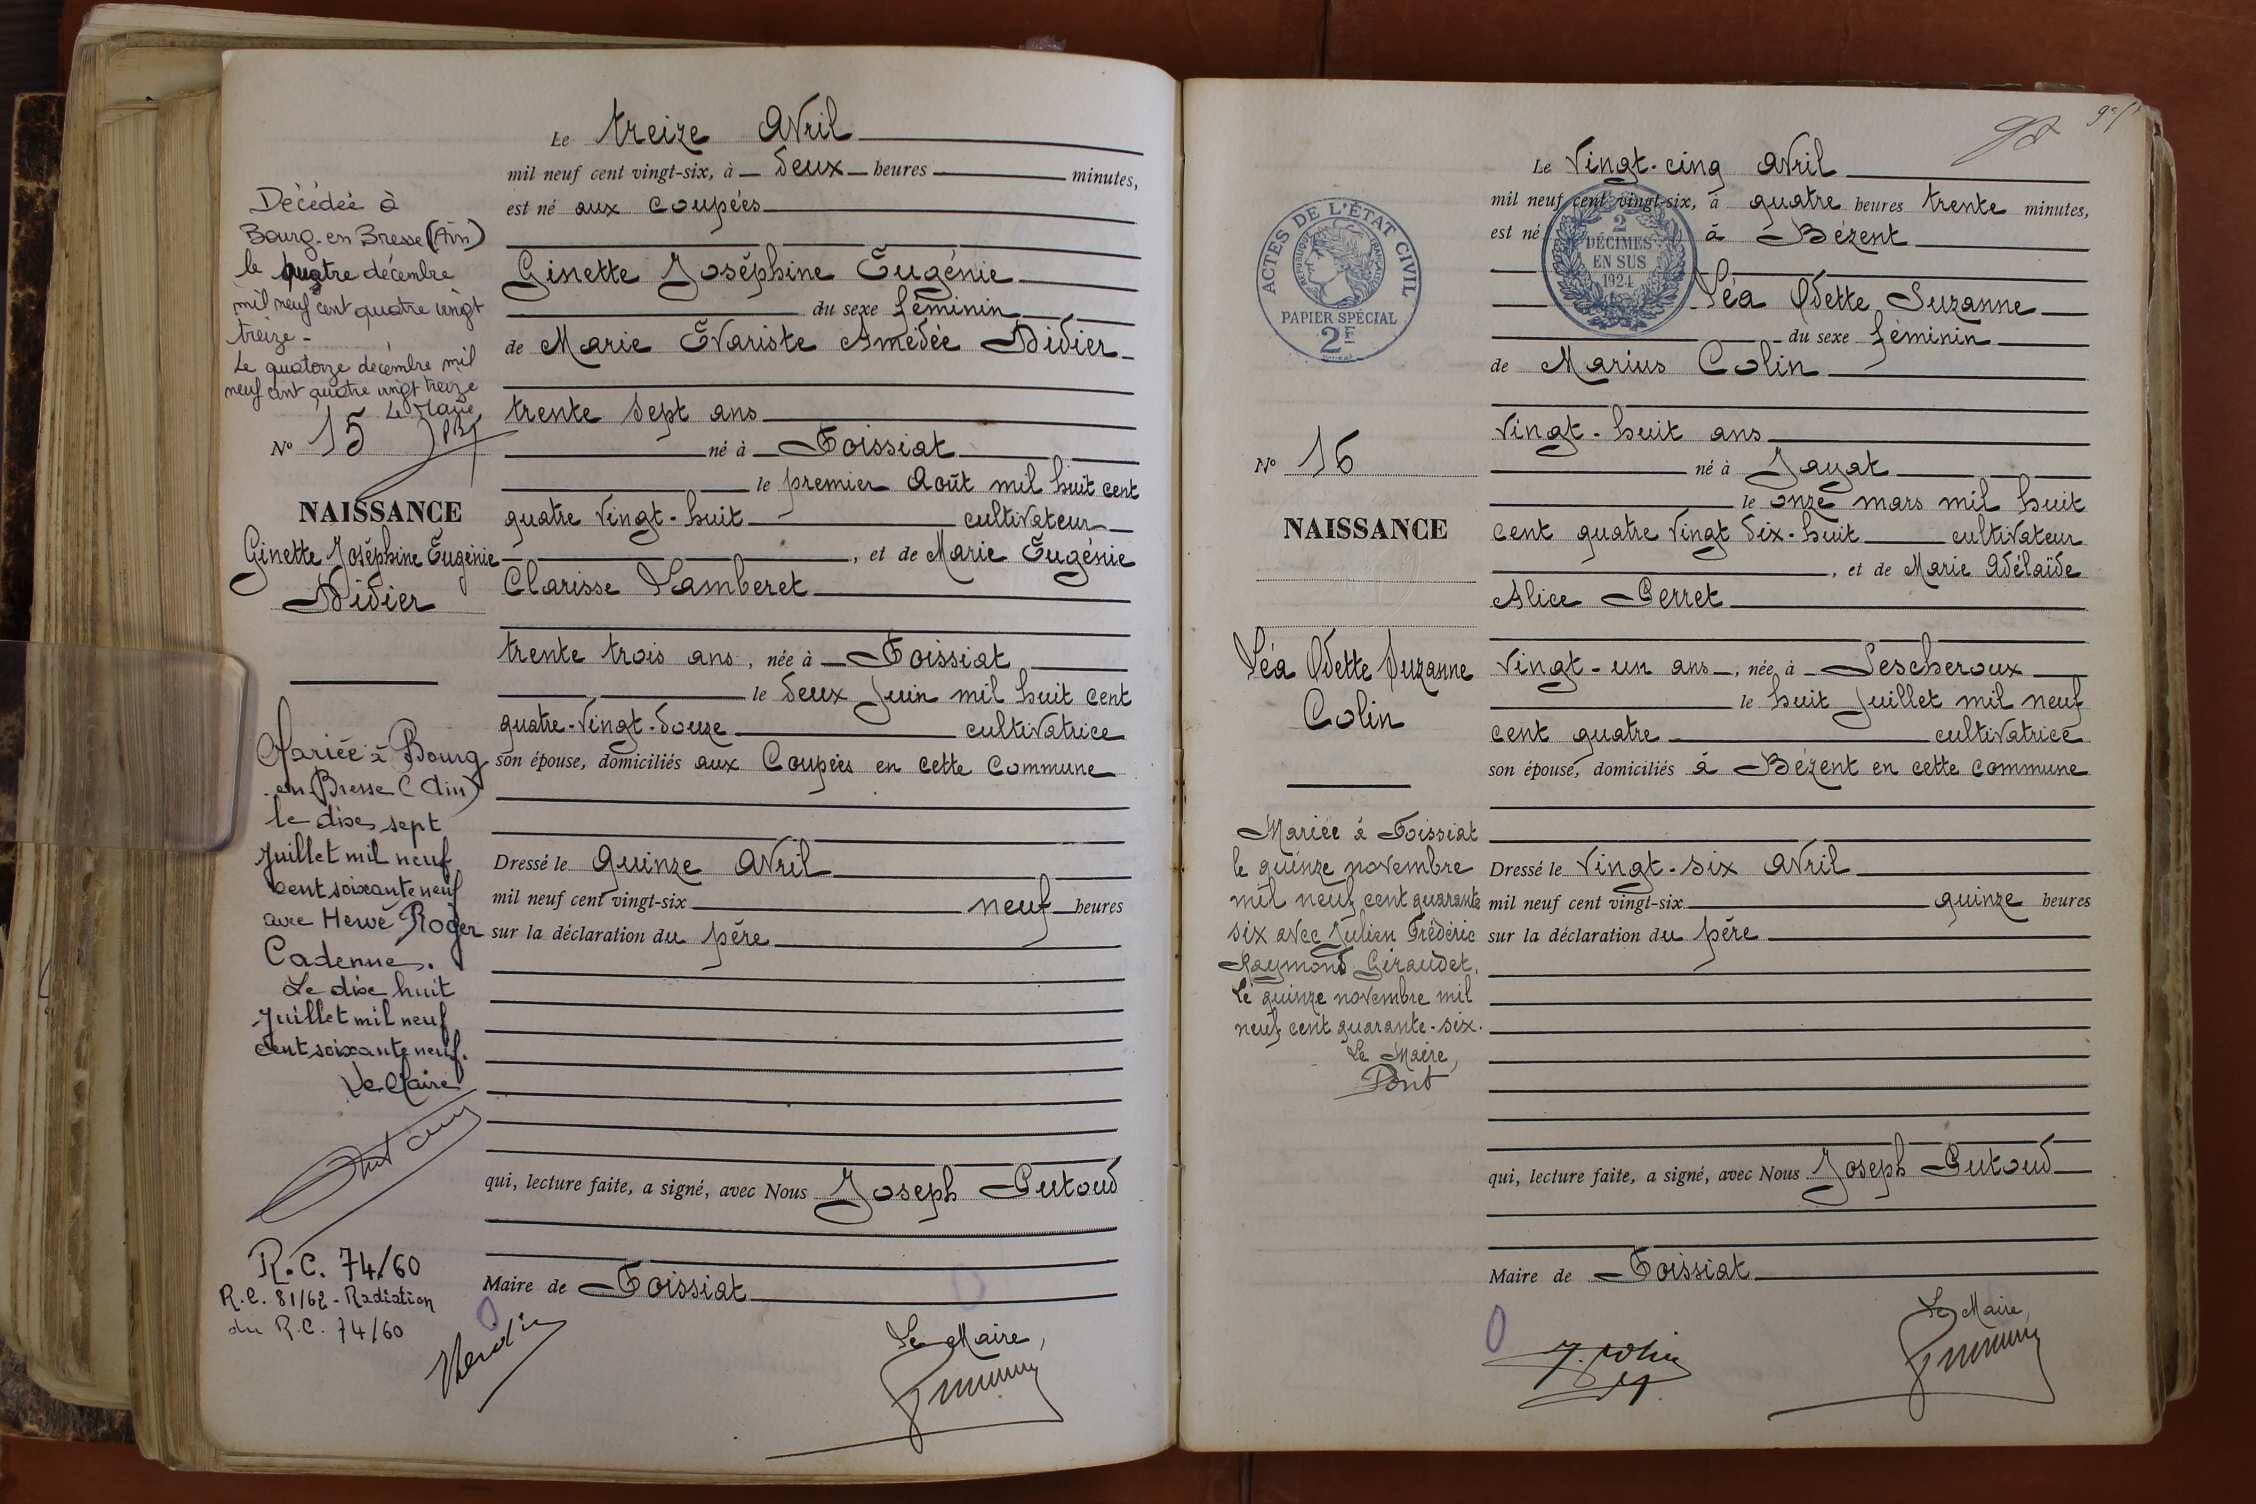 Le treize Avril
mil neuf cent vingt-six, à deux heures minutes,
est né aux Coupées
Ginette Joséphine Eugénie
du sexe féminin
de Marie Évariste Amédée Didier
trente sept ans
né à Foissiat
le premier Août mil huit cent
quatre vingt-huit cultivateur
, et de Marie Eugénie
Clarisse Lamberet
trente trois ans, née à Foissiat
le deux Juin mil huit cent
quatre-vingt-douze cultivatrice
son épouse, domiciliés aux Coupées en cette commune
Dressé le quinze Avril
mil neuf cent vingt-six neuf heures
sur la déclaration du père
qui, lecture faite, a signé, avec Nous Joseph Putoud
Maire de Foissiat
Le Maire,
Décédée à
Bourg-en Bresse (Ain)
le quatre décembre
mil neuf cent quatre vingt
treize -
Le quatorze décembre mil
neuf cent quatre vingt treize
Le Maire
No 15
NAISSANCE
Ginette Joséphine Eugénie
Didier
Mariée à Bourg
en Bresse (Ain)
le dix sept
Juillet mil neuf
cent soixante neuf
avec Hervé Roger
Cadenne.
Le dix huit
Juillet mil neuf
cent soixante neuf.
Le Maire
R.C. 74/60
R.C. 81/62 - Radiation
du R.C. 74/60
Le Vingt-cinq Avril
mil neuf cent vingt-six, à quatre heures trente minutes,
est né à Bézent
Léa Odette Suzanne
du sexe féminin
de Marius Colin
Vingt-huit ans
né à Jayat
le onze mars mil huit
cent quatre vingt dix-huit cultivateur
, et de Marie Adélaïde
Alice Perret
Vingt-un ans, née à Lescheroux
le huit Juillet mil neuf
cent quatre cultivatrice
son épouse, domiciliés à Bézent en cette commune
Dressé le Vingt-six Avril
mil neuf cent vingt-six quinze heures
sur la déclaration du père
qui, lecture faite, a signé, avec Nous Joseph Putoud
Maire de Foissiat
Le Maire,
ACTES DE L'ÉTAT CIVIL
RÉPUBLIQUE FRANÇAISE
PAPIER SPÉCIAL
2F
2
DÉCIMES
EN SUS
1924
No 16
NAISSANCE
Léa Odette Suzanne
Colin
Mariée à Foissiat
le quinze novembre
mil neuf cent quarante
six avec Julien Frédéric
Raymond Giraudet.
Le quinze novembre mil
neuf cent quarante-six.
Le Maire,
Pont